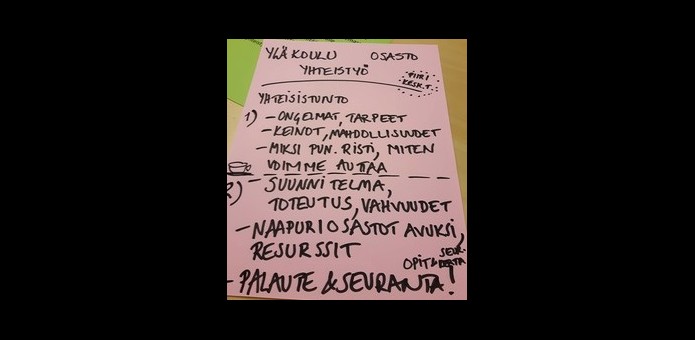 YLÄKOULU OSASTO
YHTEISTYÖ
PIIRI
KESK.T.
YHTEISISTUNTO
1) - ONGELMAT, TARPEET
- KEINOT, MAHDOLLISUUDET
- MIKSI PUN. RISTI, MITEN
VOIMME AUTTAA
2) - SUUNNITELMA,
TOTEUTUS, VAHVUUDET
- NAAPURIOSASTOT AVUKSI,
RESURSSIT
OPIT &
- PALAUTE & SEURANTA!